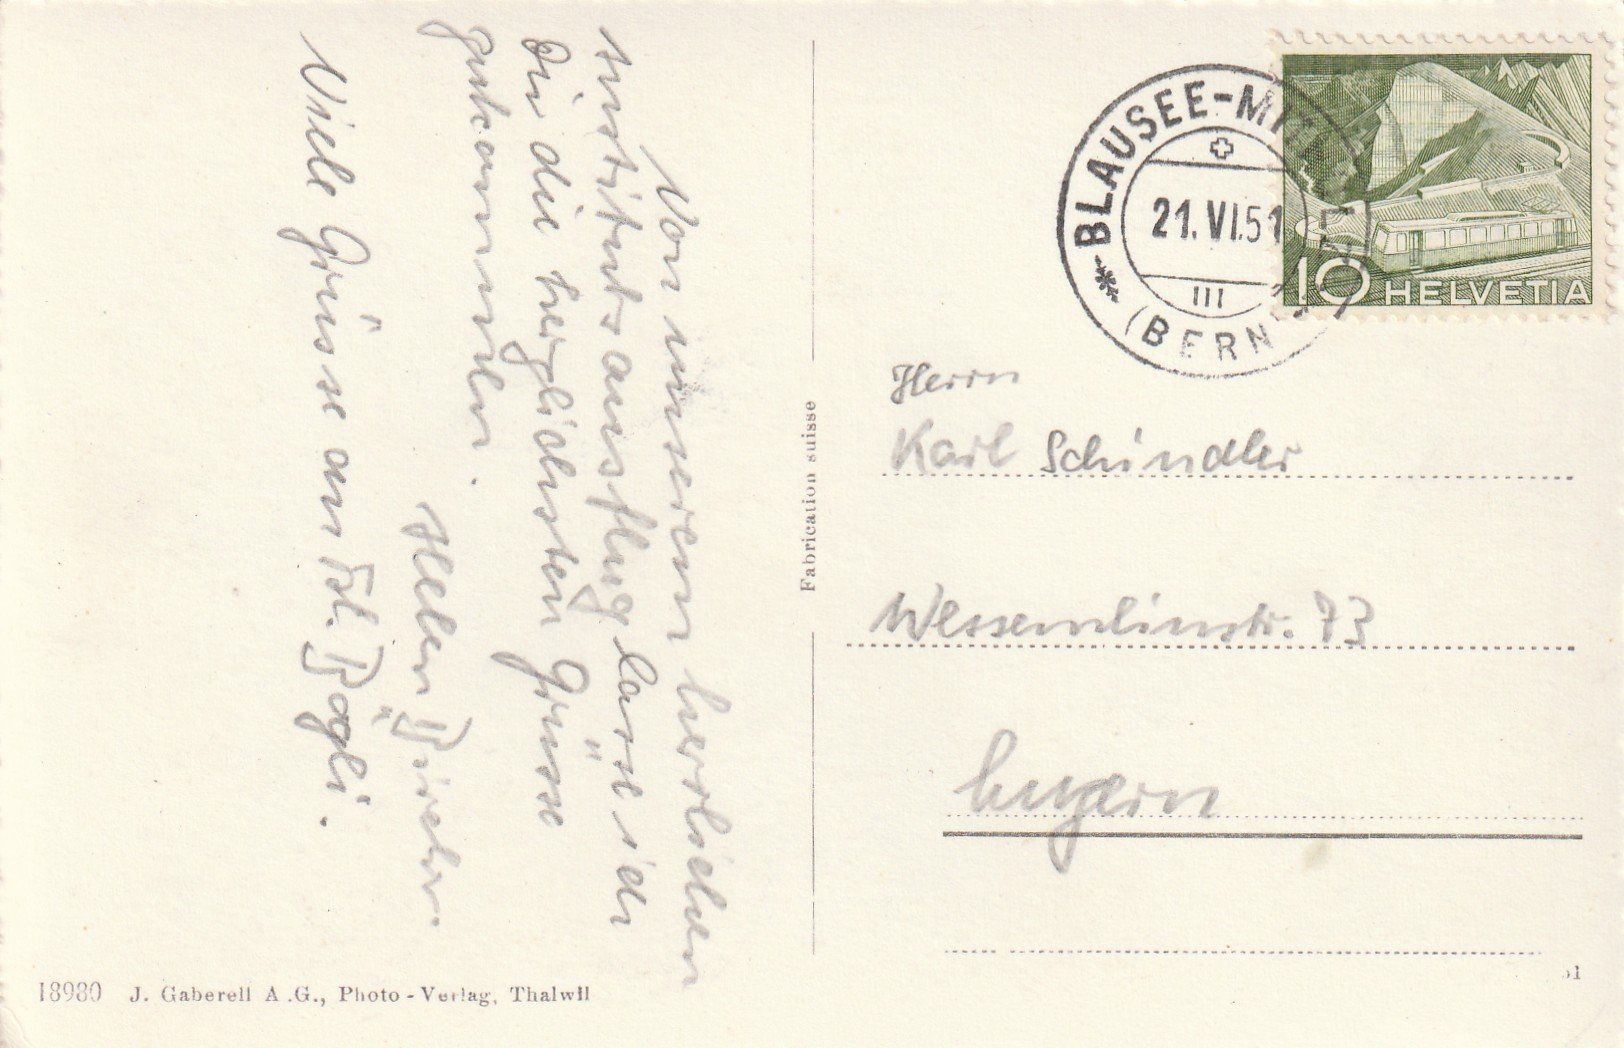 Von unserem herrlichen
Institutsausflug lasse ich
Dir die herzlichsten Grüsse
zukommen.
Viele Grüsse an Frl. Bögli.
BLAUSEE-MITHOLZ
21.VI.51
III
(BERN)
10 HELVETIA
Herrn
Karl Schindler
Wesemlinstr. 73
Luzern
Fabrication suisse
18980 J. Gaberell A.G., Photo-Verlag, Thalwil